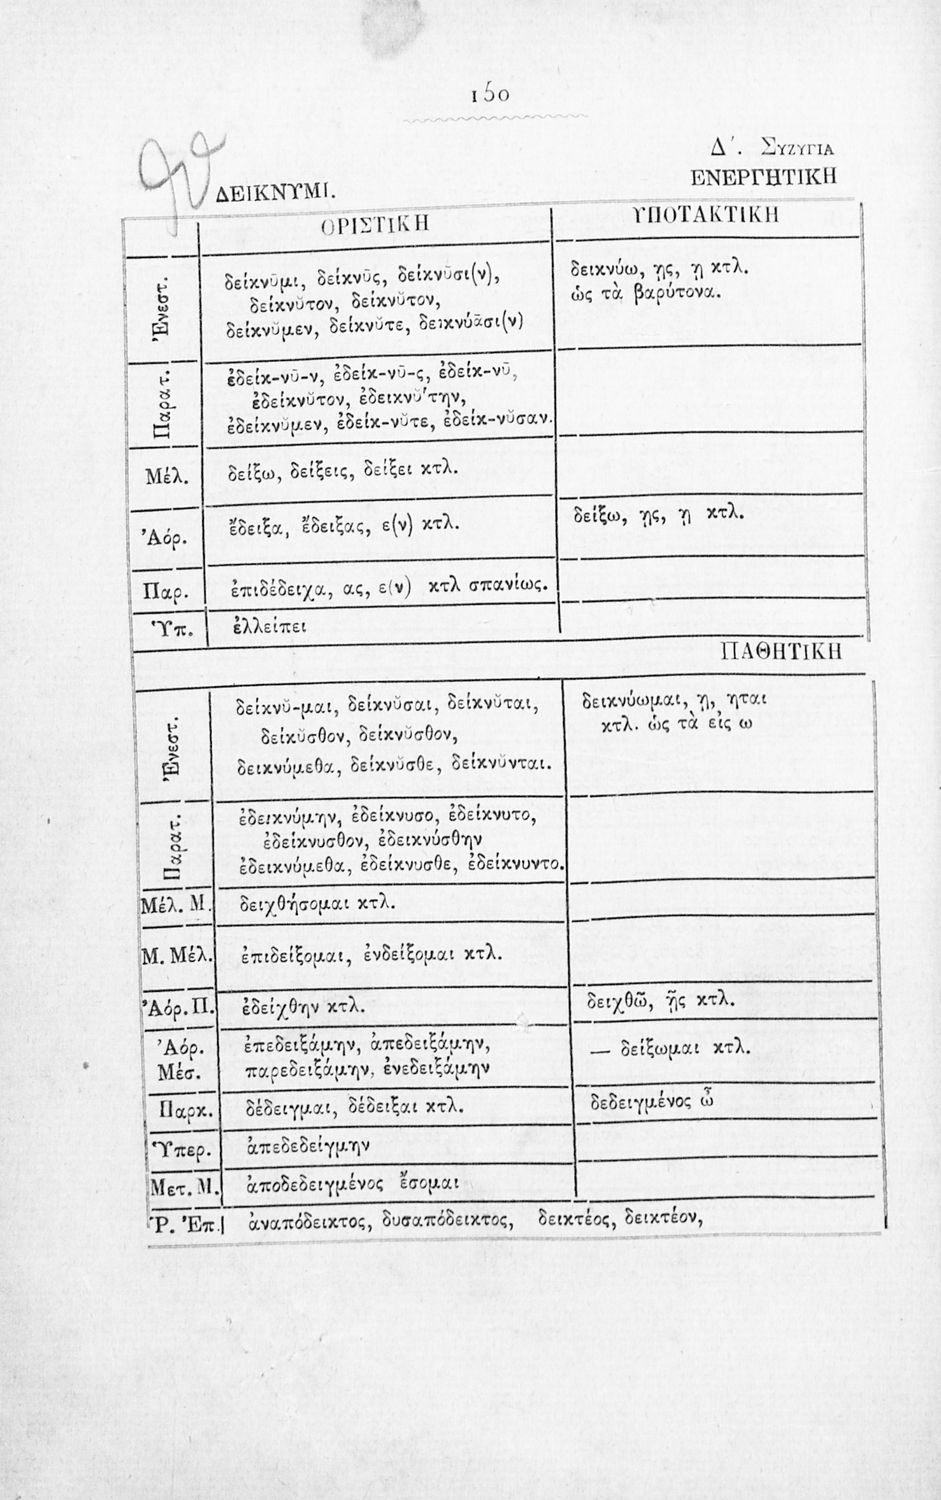 150
Δ΄. Συζυγία
ΔΕΙΚΝΥΜΙ.
ΕΝΕΡΓΗΤΙΚΗ
ΟΡΙΣΤΙΚΗ
ΥΠΟΤΑΚΤΙΚΗ
Ἐνεστ.
δείκνῡμι, δείκνῡς, δείκνῡσι(ν),
δείκνῠτον, δείκνῠτον,
δείκνῠμεν, δείκνῠτε, δεικνύᾱσι(ν)
δεικνύω, ῃς, ῃ κτλ.
ὡς τὰ βαρύτονα.
Παρατ.
ἐδείκ-νῡ-ν, ἐδείκ-νῡ-ς, ἐδείκ-νῡ,
ἐδείκνῠτον, ἐδεικνῠ́την,
ἐδείκνῠμεν, ἐδείκ-νῠτε, ἐδείκ-νῠσαν.
Μέλ.
δείξω, δείξεις, δείξει κτλ.
Ἀόρ.
ἔδειξα, ἔδειξας, ε(ν) κτλ.
δείξω, ῃς, ῃ κτλ.
Παρ.
ἐπιδέδειχα, ας, ε(ν) κτλ σπανίως.
Ὑπ.
ἐλλείπει
ΠΑΘΗΤΙΚΗ
Ἐνεστ.
δείκνῠ-μαι, δείκνῠσαι, δείκνῠται,
δείκῠσθον, δείκνῠσθον,
δεικνύμεθα, δείκνῠσθε, δείκνῠνται.
δεικνύωμαι, ῃ, ηται
κτλ. ὡς τὰ εἰς ω
Παρατ.
ἐδεικνύμην, ἐδείκνυσο, ἐδείκνυτο,
ἐδείκνυσθον, ἐδεικνύσθην
ἐδεικνύμεθα, ἐδείκνυσθε, ἐδείκνυντο.
Μέλ. Μ.
δειχθήσομαι κτλ.
Μ. Μέλ.
ἐπιδείξομαι, ἐνδείξομαι κτλ.
Ἀόρ. Π.
ἐδείχθην κτλ.
δειχθῶ, ῇς κτλ.
Ἀόρ.
Μέσ.
ἐπεδειξάμην, ἀπεδειξάμην,
παρεδειξάμην, ἐνεδειξάμην
— δείξωμαι κτλ.
Παρκ.
δέδειγμαι, δέδειξαι κτλ.
δεδειγμένος ὦ
Ὑπερ.
ἀπεδεδείγμην
Μετ. Μ.
ἀποδεδειγμένος ἔσομαι
Ῥ. Ἐπ.
ἀναπόδεικτος, δυσαπόδεικτος, δεικτέος, δεικτέον,